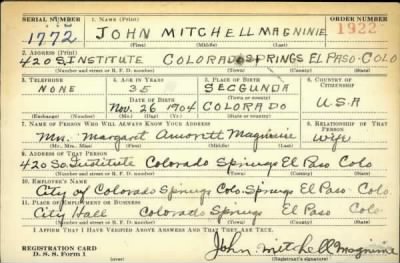 SERIAL NUMBER 1. NAME (Print) ORDER NUMBER
1772 JOHN MITCHELL MAGNINIE 1922
(First) (Middle) (Last)
2. ADDRESS (Print)
420 S. INSTITUTE COLORADO SPRINGS EL PASO COLO
(Number and street or R. F. D. number) (Town) (County) (State)
3. TELEPHONE 4. AGE IN YEARS 5. PLACE OF BIRTH 6. COUNTRY OF CITIZENSHIP
NONE 35 SEGGUNDA
DATE OF BIRTH (Town or county)
Nov. 26 1904 COLORADO U.S.A
(Exchange) (Number) (Mo.) (Day) (Yr.) (State or country)
7. NAME OF PERSON WHO WILL ALWAYS KNOW YOUR ADDRESS 8. RELATIONSHIP OF THAT PERSON
Mrs. Margaret Magninie Wife
(Mr., Mrs., Miss) (First) (Middle) (Last)
9. ADDRESS OF THAT PERSON
420 So. Institute Colorado Springs El Paso Colo
(Number and street or R. F. D. number) (Town) (County) (State)
10. EMPLOYER'S NAME
City of Colorado Springs Colo. Springs El Paso Colo.
11. PLACE OF EMPLOYMENT OR BUSINESS
City Hall Colorado Springs El Paso Colo.
(Number and street or R. F. D. number) (Town) (County) (State)
I AFFIRM THAT I HAVE VERIFIED ABOVE ANSWERS AND THAT THEY ARE TRUE.
REGISTRATION CARD John Mitchell Magninie
D. S. S. Form 1 (Registrant's signature)